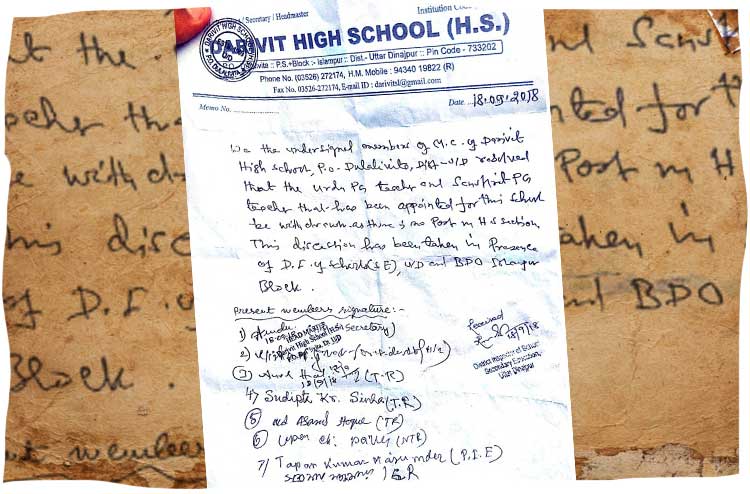 / Secretary / Headmaster
Institution
DARIVIT HIGH SCHOOL (H.S.)
:: P.S.+Block :- Islampur :: Dist.- Uttar Dinajpur :: Pin Code - 733202
Phone No. (03526) 272174, H.M. Mobile : 94340 19822 (R)
Fax No. 03526-272174, E-mail ID : darivitsl@gmail.com
Memo No.
Date 18.09.2018
We the undersigned members of M.C. of Darivit
High school, P.O. Dalalivita, Dist - U/D resolved
that the urdu PG teacher and Sanskrit PG
teacher that has been appointed for this school
be withdrawn as there is no Post in H.S section.
This direction has been taken in Presence
of D.I. of schools (S E), UD and BDO Islampur
Block.
Present members signature :-
1) (Secretary)
2)
3) (T.R)
4) Sudipta Kr. Sinha (T.R)
5) Md Asand Hoque (TR)
6) (NTR)
7) Tapan Kumar Majumder (P.I.E)
Received
18/9/18
District Inspector of School
Secondary Education,
Uttar Dinajpur